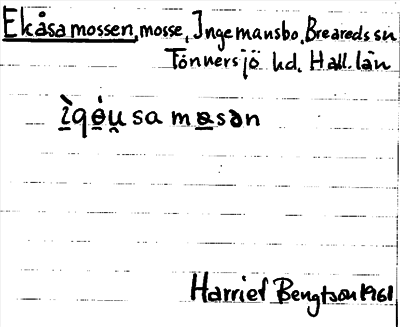 Ekåsa mossen, mosse, Ingemansbo, Breareds sn
Tönnersjö hd. Hall. län
sa
Harriet Bengtson 1961